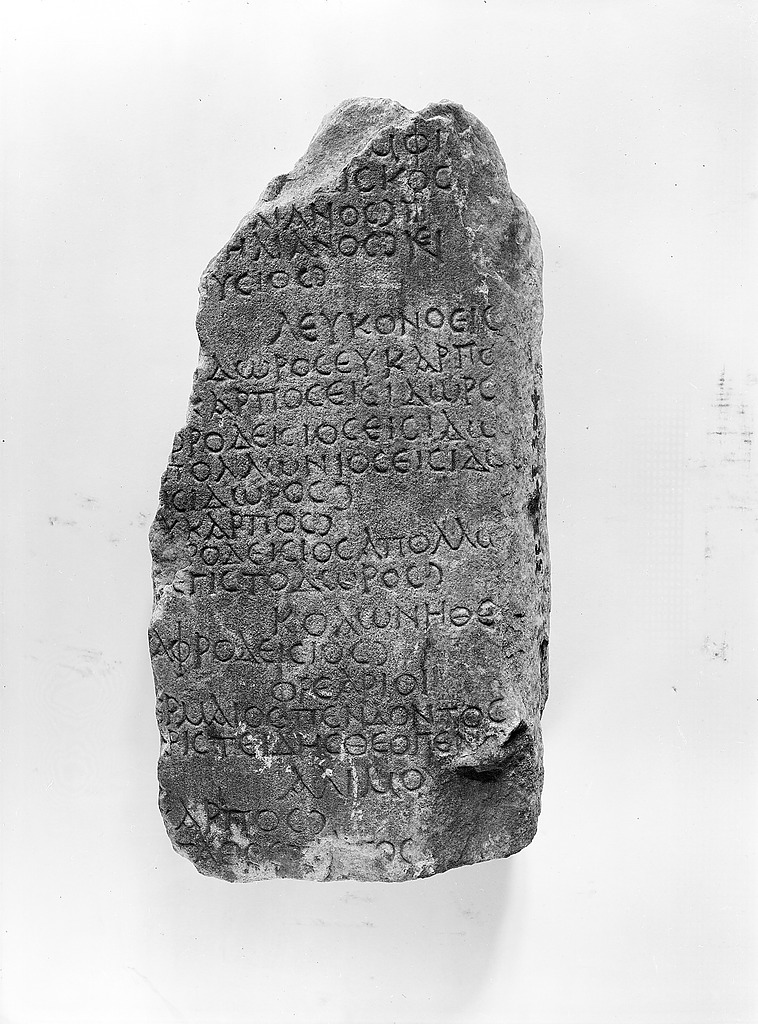 ΙϹΚΟϹ
ΙΑΝΟϹϽ
ΗΛΙΑΝΟϹϽ ΚΕΙ
ΥϹΙΟϹϽ
ΛΕΥΚΟΝΟΕΙϹ
ΔωΡΟϹ ΕΥΚΑΡΠΟ
ΚΑΡΠΟϹ ΕΙϹΙΔωΡΟ
ΦΡΟΔΕΙϹΙΟϹ ΕΙϹΙΔω
ΠΟΛΛωΝΙΟϹ ΕΙϹΙΔω
ϹΙΔωΡΟϹϽ
ΥΚΑΡΠΟϹϽ
ΡΟΔΕΙϹΙΟϹ ΑΠΟΛΛω
ΕΠΙϹΤΟΔωΡΟϹϽ
ΚΟΛωΝΗΘΕ
ΑΦΡΟΔΕΙϹΙΟϹϽ
ΟΙΕΑΡΙΟΙ
ΡΜΑΙΟϹ ΠΕΝΔΟΝΤΟϹ
ΡΙϹΤΕΙΔΗϹ ΘΕΟΠΕΝ
ΑΛΙΜΟ
ΑΡΠΟϹϽ
ΤΟϹ